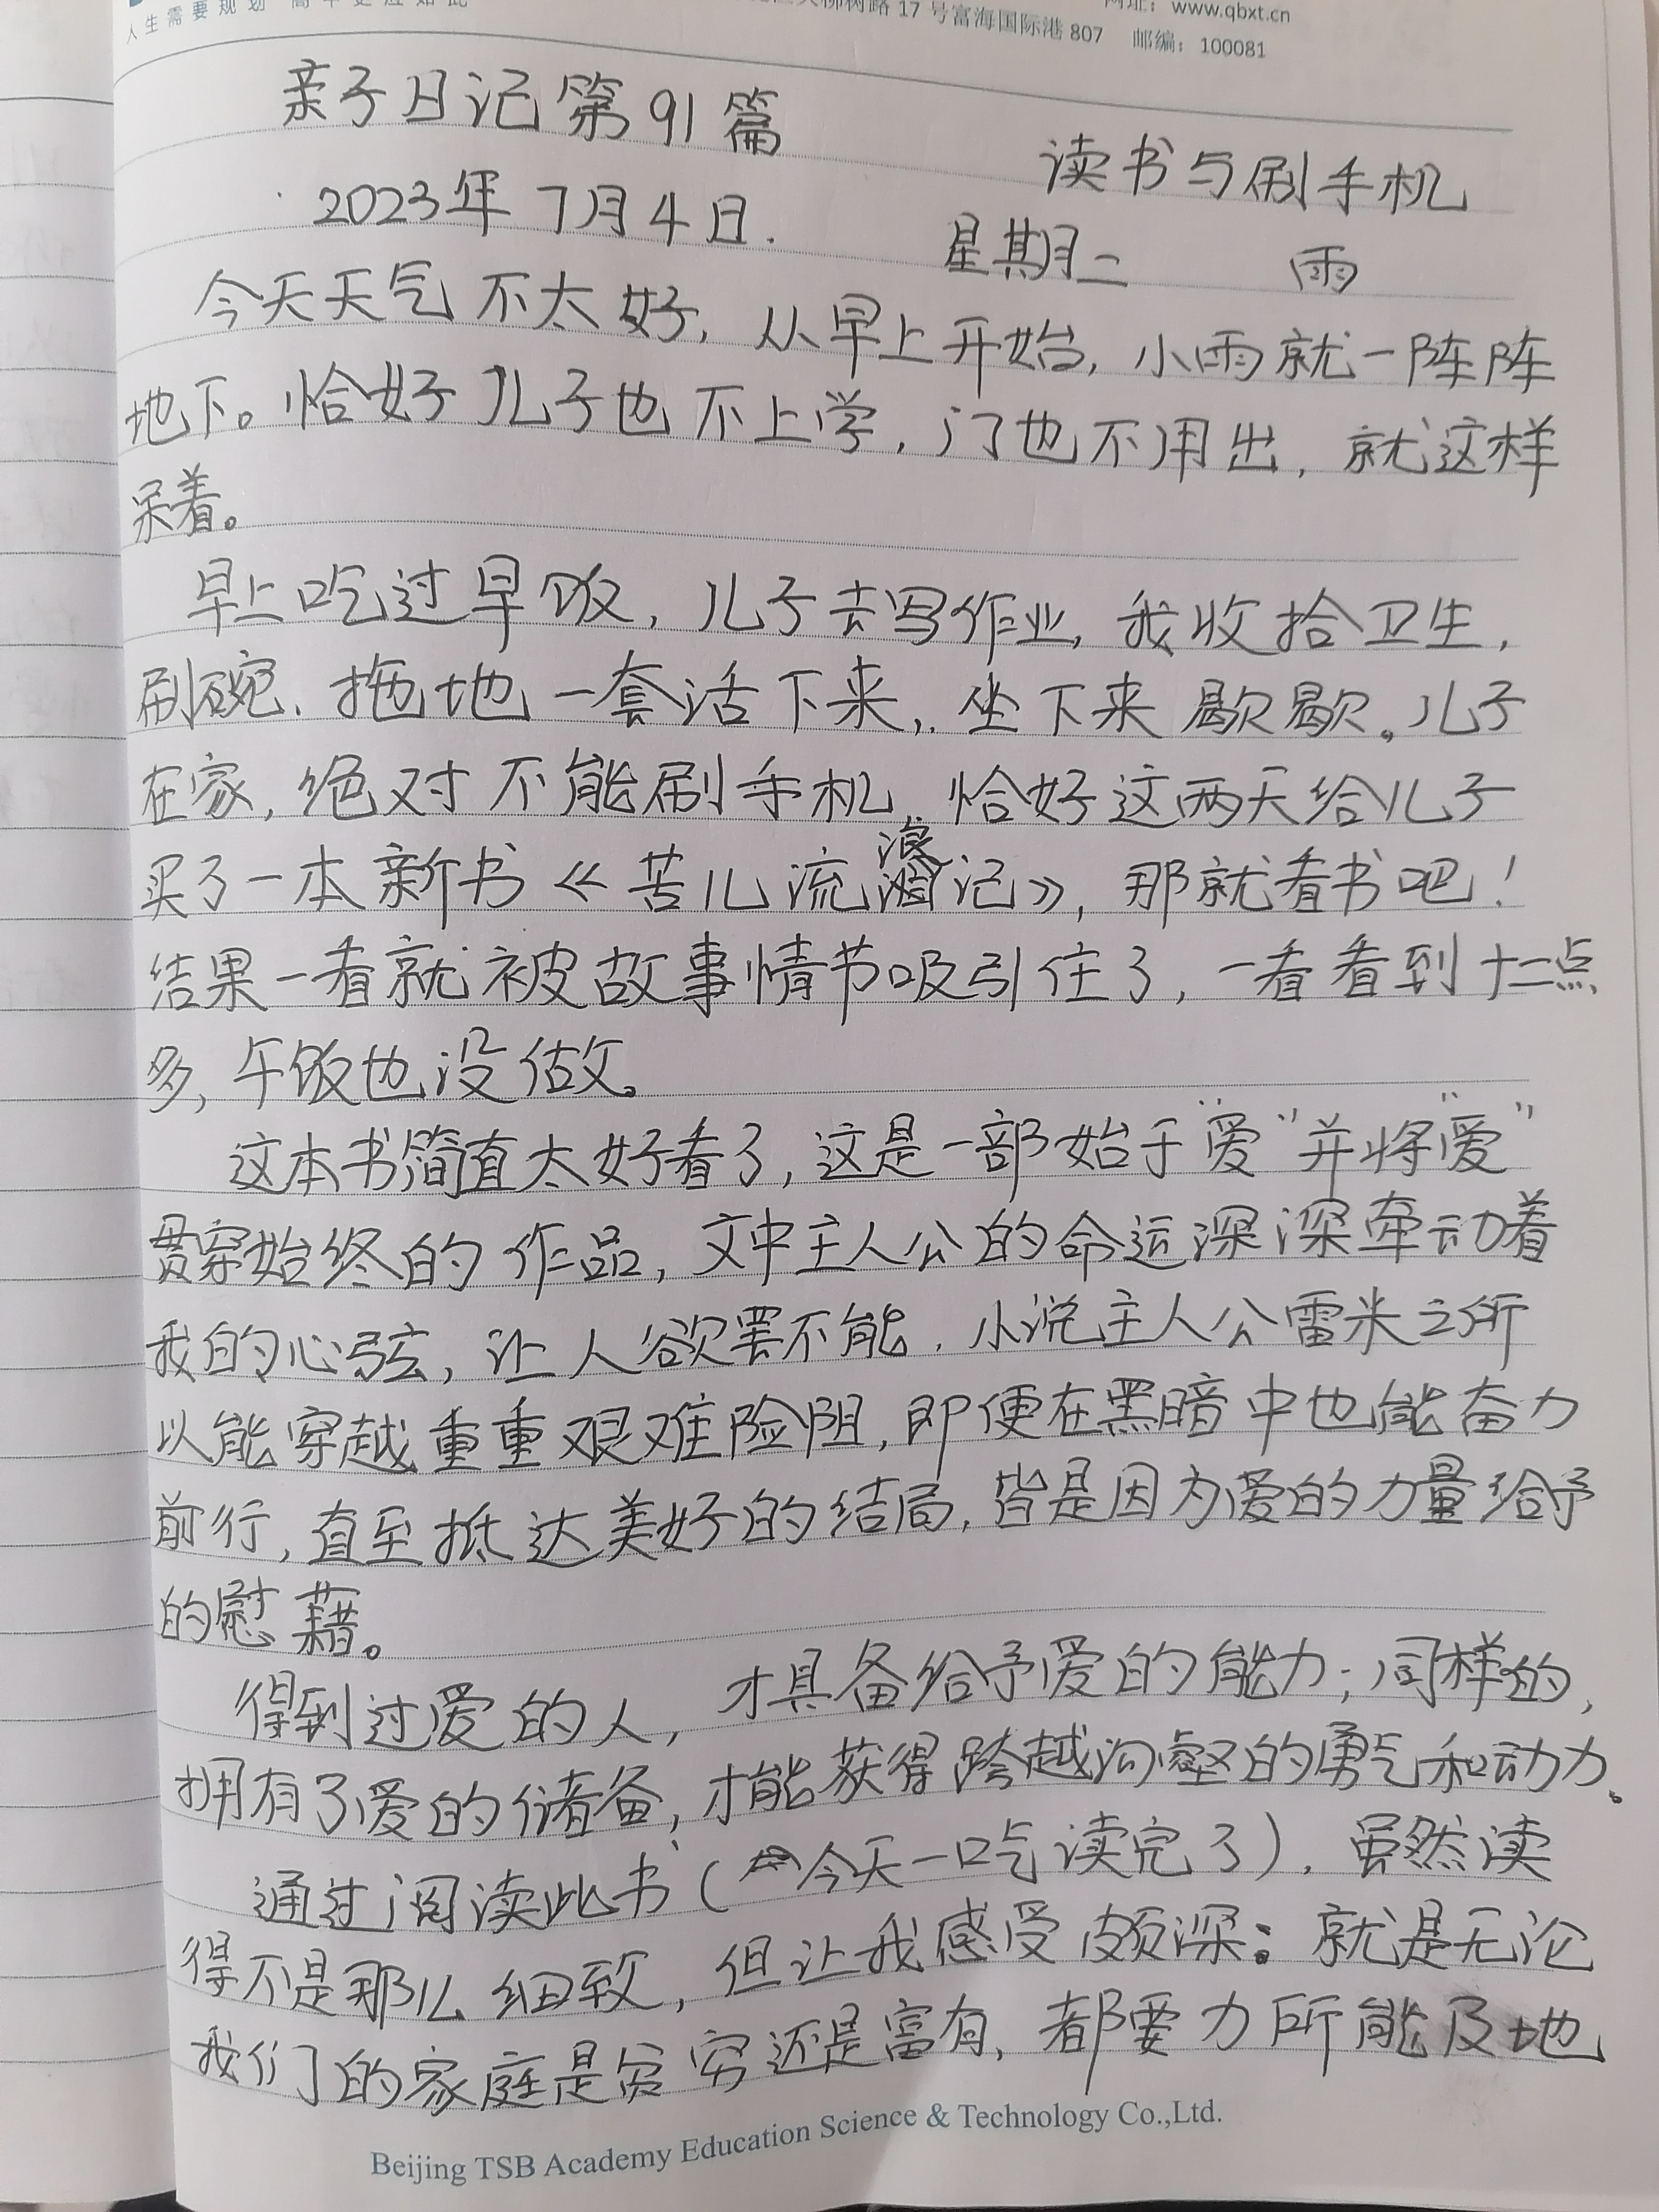 人生需要规划
柳树路17号富海国际港807
网址：www.qbxt.cn
邮编：100081
亲子日记第91篇
读书与刷手机
2023年7月4日.
星期二 雨
今天天气不太好，从早上开始，小雨就一阵阵
地下。恰好儿子也不上学，门也不用出，就这样
呆着。
早上吃过早饭，儿子去写作业，我收拾卫生，
刷碗、拖地一套活下来，坐下来歇歇。儿子
在家，绝对不能刷手机，恰好这两天给儿子
买了一本新书《苦儿流浪记》，那就看书吧！
结果一看就被故事情节吸引住了，一看看到十二点
多，午饭也没做。
这本书简直太好看了，这是一部始于“爱”并将“爱”
贯穿始终的作品，文中主人公的命运深深牵动着
我的心弦，让人欲罢不能，小说主人公雷米之所
以能穿越重重艰难险阻，即便在黑暗中也能奋力
前行，直至抵达美好的结局，皆是因为爱的力量给予
的慰藉。
得到过爱的人，才具备给予爱的能力；同样的，
拥有了爱的储备，才能获得跨越沟壑的勇气和动力。
通过阅读此书（今天一吃读完了），虽然读
得不是那么细致，但让我感受颇深：就是无论
我们的家庭是贫穷还是富有，都要力所能及地
Beijing TSB Academy Education Science & Technology Co.,Ltd.